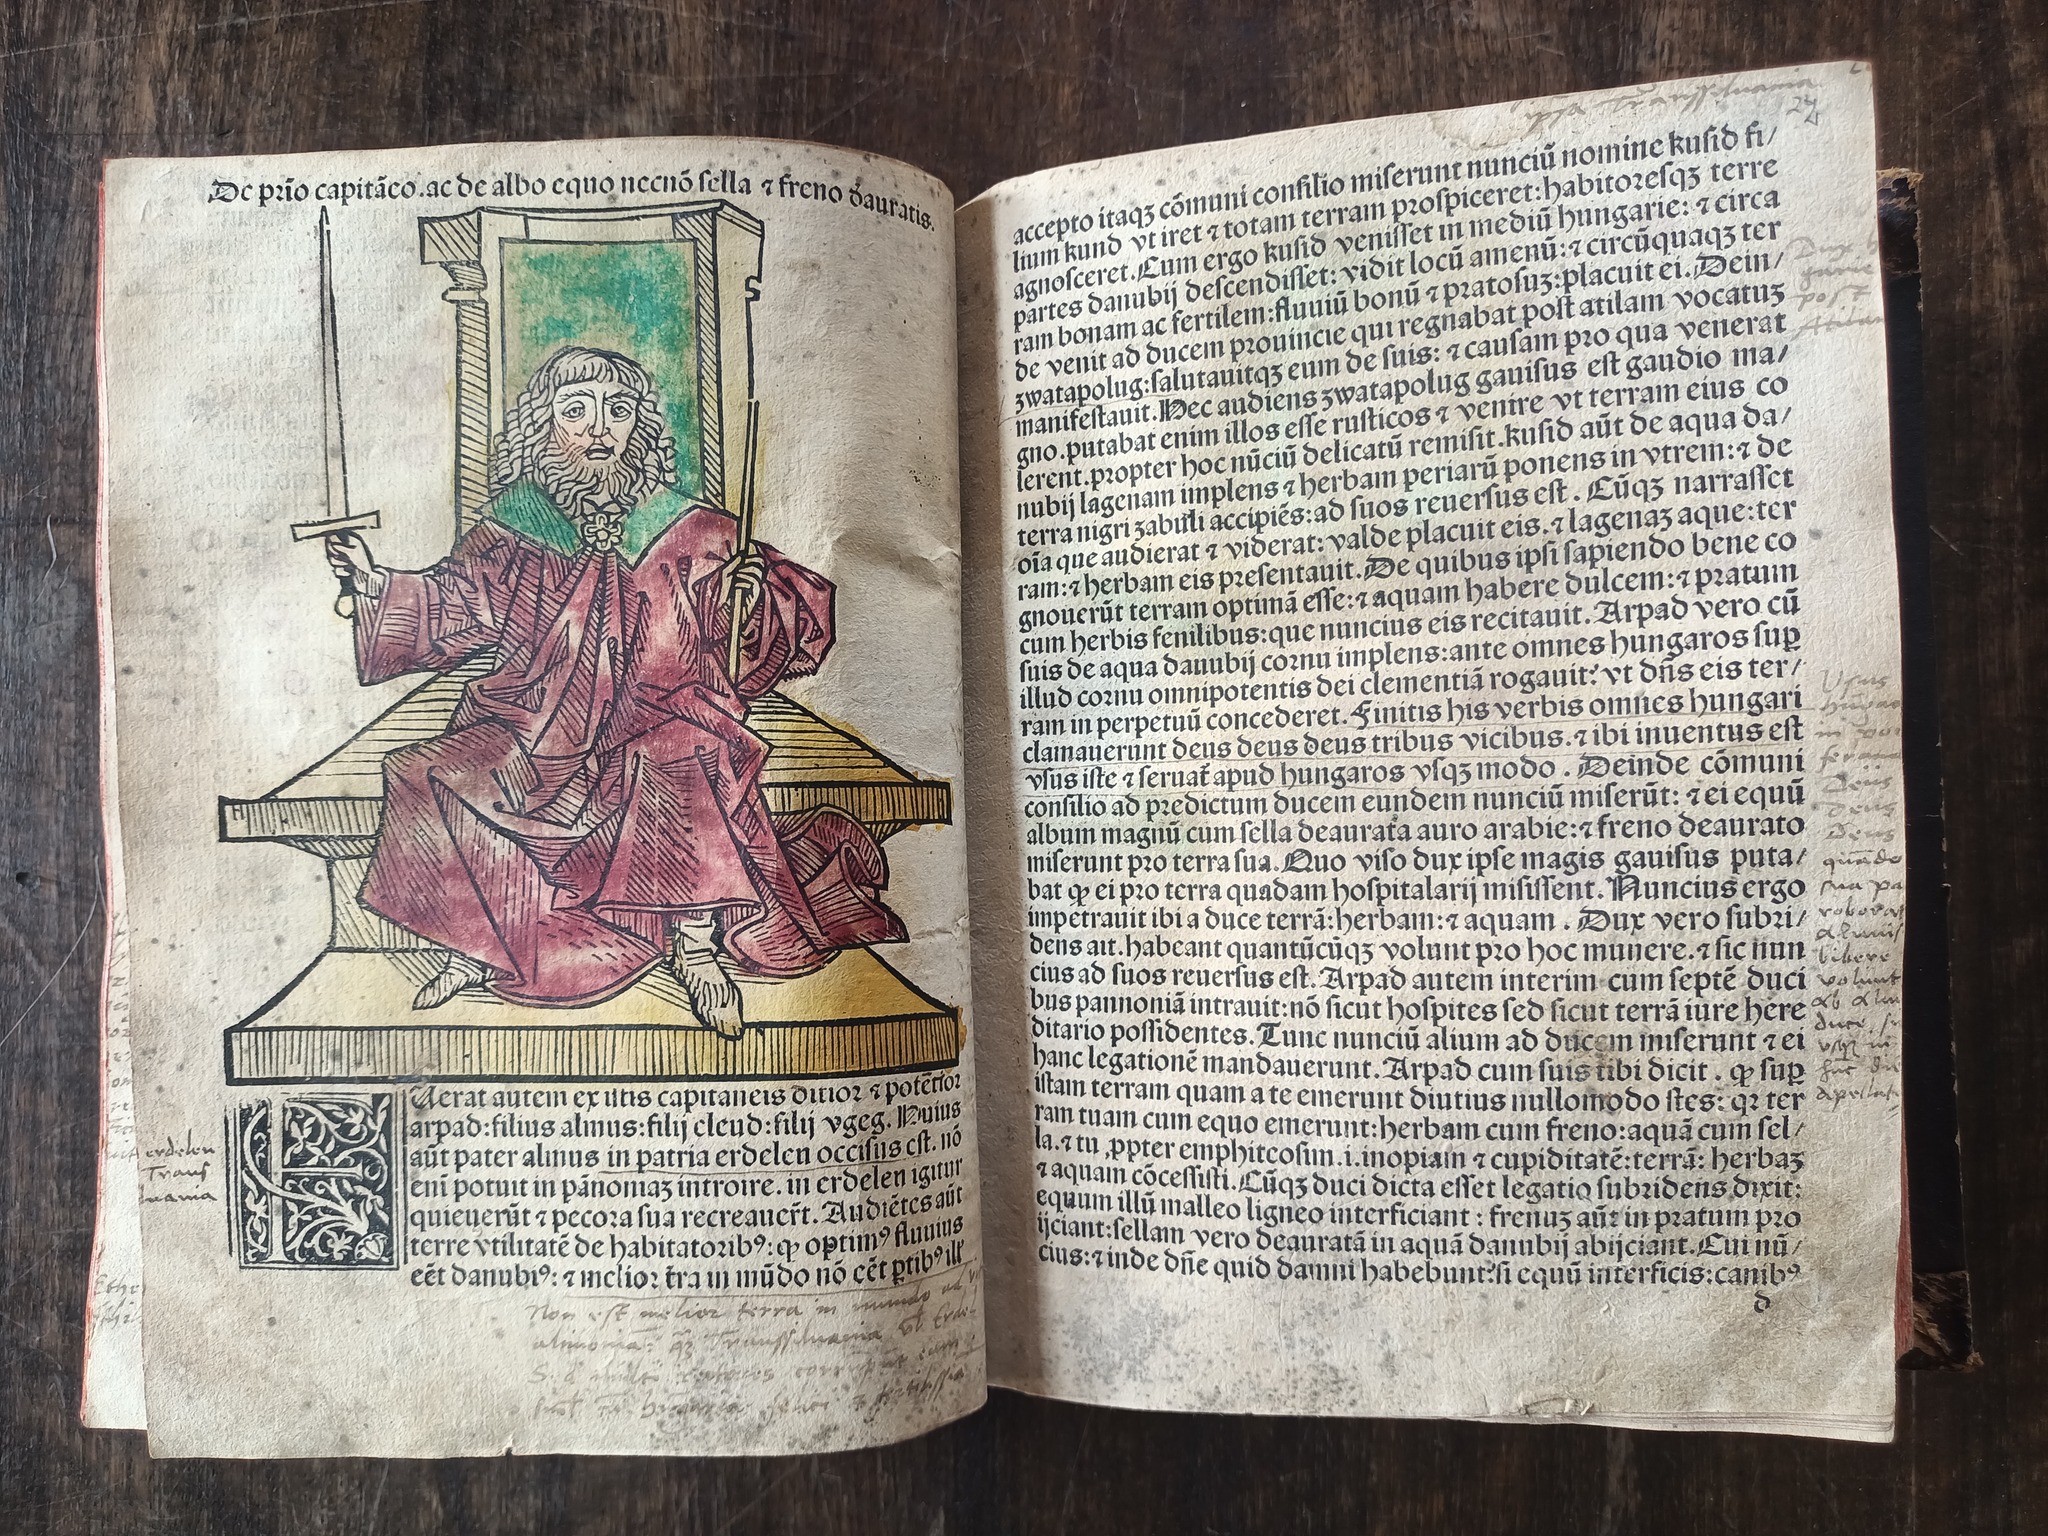 De prīo capitāeo.ac de albo equo necnō sella ⁊ freno dauratis.
Uerat autem ex istis capitaneis ditior ⁊ potētior
arpad:filius almus:filij eleud:filij vgeg. Huius
aūt pater almus in patria erdelen occisus est. nō
enī potuit in pānoniaȝ introire. in erdelen igitur
quieuerūt ⁊ pecora sua recreauerūt. Audiētes aūt
terre vtilitatē de habitatoribꝰ: ꝙ optimꝰ fluuius
eēt danubiꝰ: ⁊ melior t̄ra in mūdo nō eēt ꝑtibꝰ ill̄
erdelen
Trans
siluania
Non est melior terra in mundo
accepto itaqȝ cōmuni consilio miserunt nunciū nomine kusid fi/
lium kund vt iret ⁊ totam terram prospiceret:habitoresqȝ terre
agnosceret.Cum ergo kusid venisset in mediū hungarie: ⁊ circa
partes danubij descendisset: vidit locū amenū: ⁊ circūquaqȝ ter
ram bonam ac fertilem:fluuiū bonū ⁊ pratosuȝ:placuit ei. Dein/
de venit ad ducem prouincie qui regnabat post atilam vocatuȝ
ȝwatapolug:salutauitqȝ eum de suis: ⁊ causam pro qua venerat
manifestauit.Hec audiens ȝwatapolug gauisus est gaudio ma/
gno.putabat enim illos esse rusticos ⁊ venire vt terram eius co
lerent.propter hoc nūciū delicatū remisit.kusid aūt de aqua da/
nubij lagenam implens ⁊ herbam periarū ponens in vtrem: ⁊ de
terra nigri ȝabuli accipiēs:ad suos reuersus est. Cūqȝ narrasset
oīa que audierat ⁊ viderat: valde placuit eis. ⁊ lagenaȝ aque:ter
ram: ⁊ herbam eis presentauit.De quibus ipsi sapiendo bene co
gnouerūt terram optimā esse: ⁊ aquam habere dulcem: ⁊ pratum
cum herbis fenilibus:que nuncius eis recitauit. Arpad vero cū
suis de aqua danubij cornu implens:ante omnes hungaros suꝑ
illud cornu omnipotentis dei clementiā rogauit: vt dn̄s eis ter/
ram in perpetuū concederet. Finitis his verbis omnes hungari
clamauerunt deus deus deus tribus vicibus. ⁊ ibi inuentus est
vsus iste ⁊ seruat̄ apud hungaros vsqȝ modo . Deinde cōmuni
consilio ad predictum ducem eundem nunciū miserūt: ⁊ ei equū
album magnū cum sella deaurata auro arabie: ⁊ freno deaurato
miserunt pro terra sua. Quo viso dux ipse magis gauisus puta/
bat ꝙ ei pro terra quadam hospitalarij misissent. Nuncius ergo
impetrauit ibi a duce terrā:herbam: ⁊ aquam . Dux vero subri/
dens ait.habeant quantūcūqȝ volunt pro hoc munere. ⁊ sic nun
cius ad suos reuersus est. Arpad autem interim cum septē duci
bus pannoniā intrauit:nō sicut hospites sed sicut terrā iure here
ditario possidentes. Tunc nunciū alium ad ducem miserunt ⁊ ei
hanc legationē mandauerunt. Arpad cum suis tibi dicit . ꝙ suꝑ
istam terram quam a te emerunt diutius nullomodo stes: qꝛ ter
ram tuam cum equo emerunt:herbam cum freno:aquā cum sel/
la. ⁊ tu ꝓpter emphitcosim.i.inopiam ⁊ cupiditatē:terrā: herbaȝ
⁊ aquam cōcessisti. Cūqȝ duci dicta esset legatio subridens dixit:
equum illū malleo ligneo interficiant : frenuȝ aūt in pratum pro
ijciant:sellam vero deauratā in aquā danubij abijciant. Cui nū/
cius: ⁊ inde dn̄e quid damni habebunt:si equū interficis:canibꝰ
d
Deus
Deus
Deus
libere